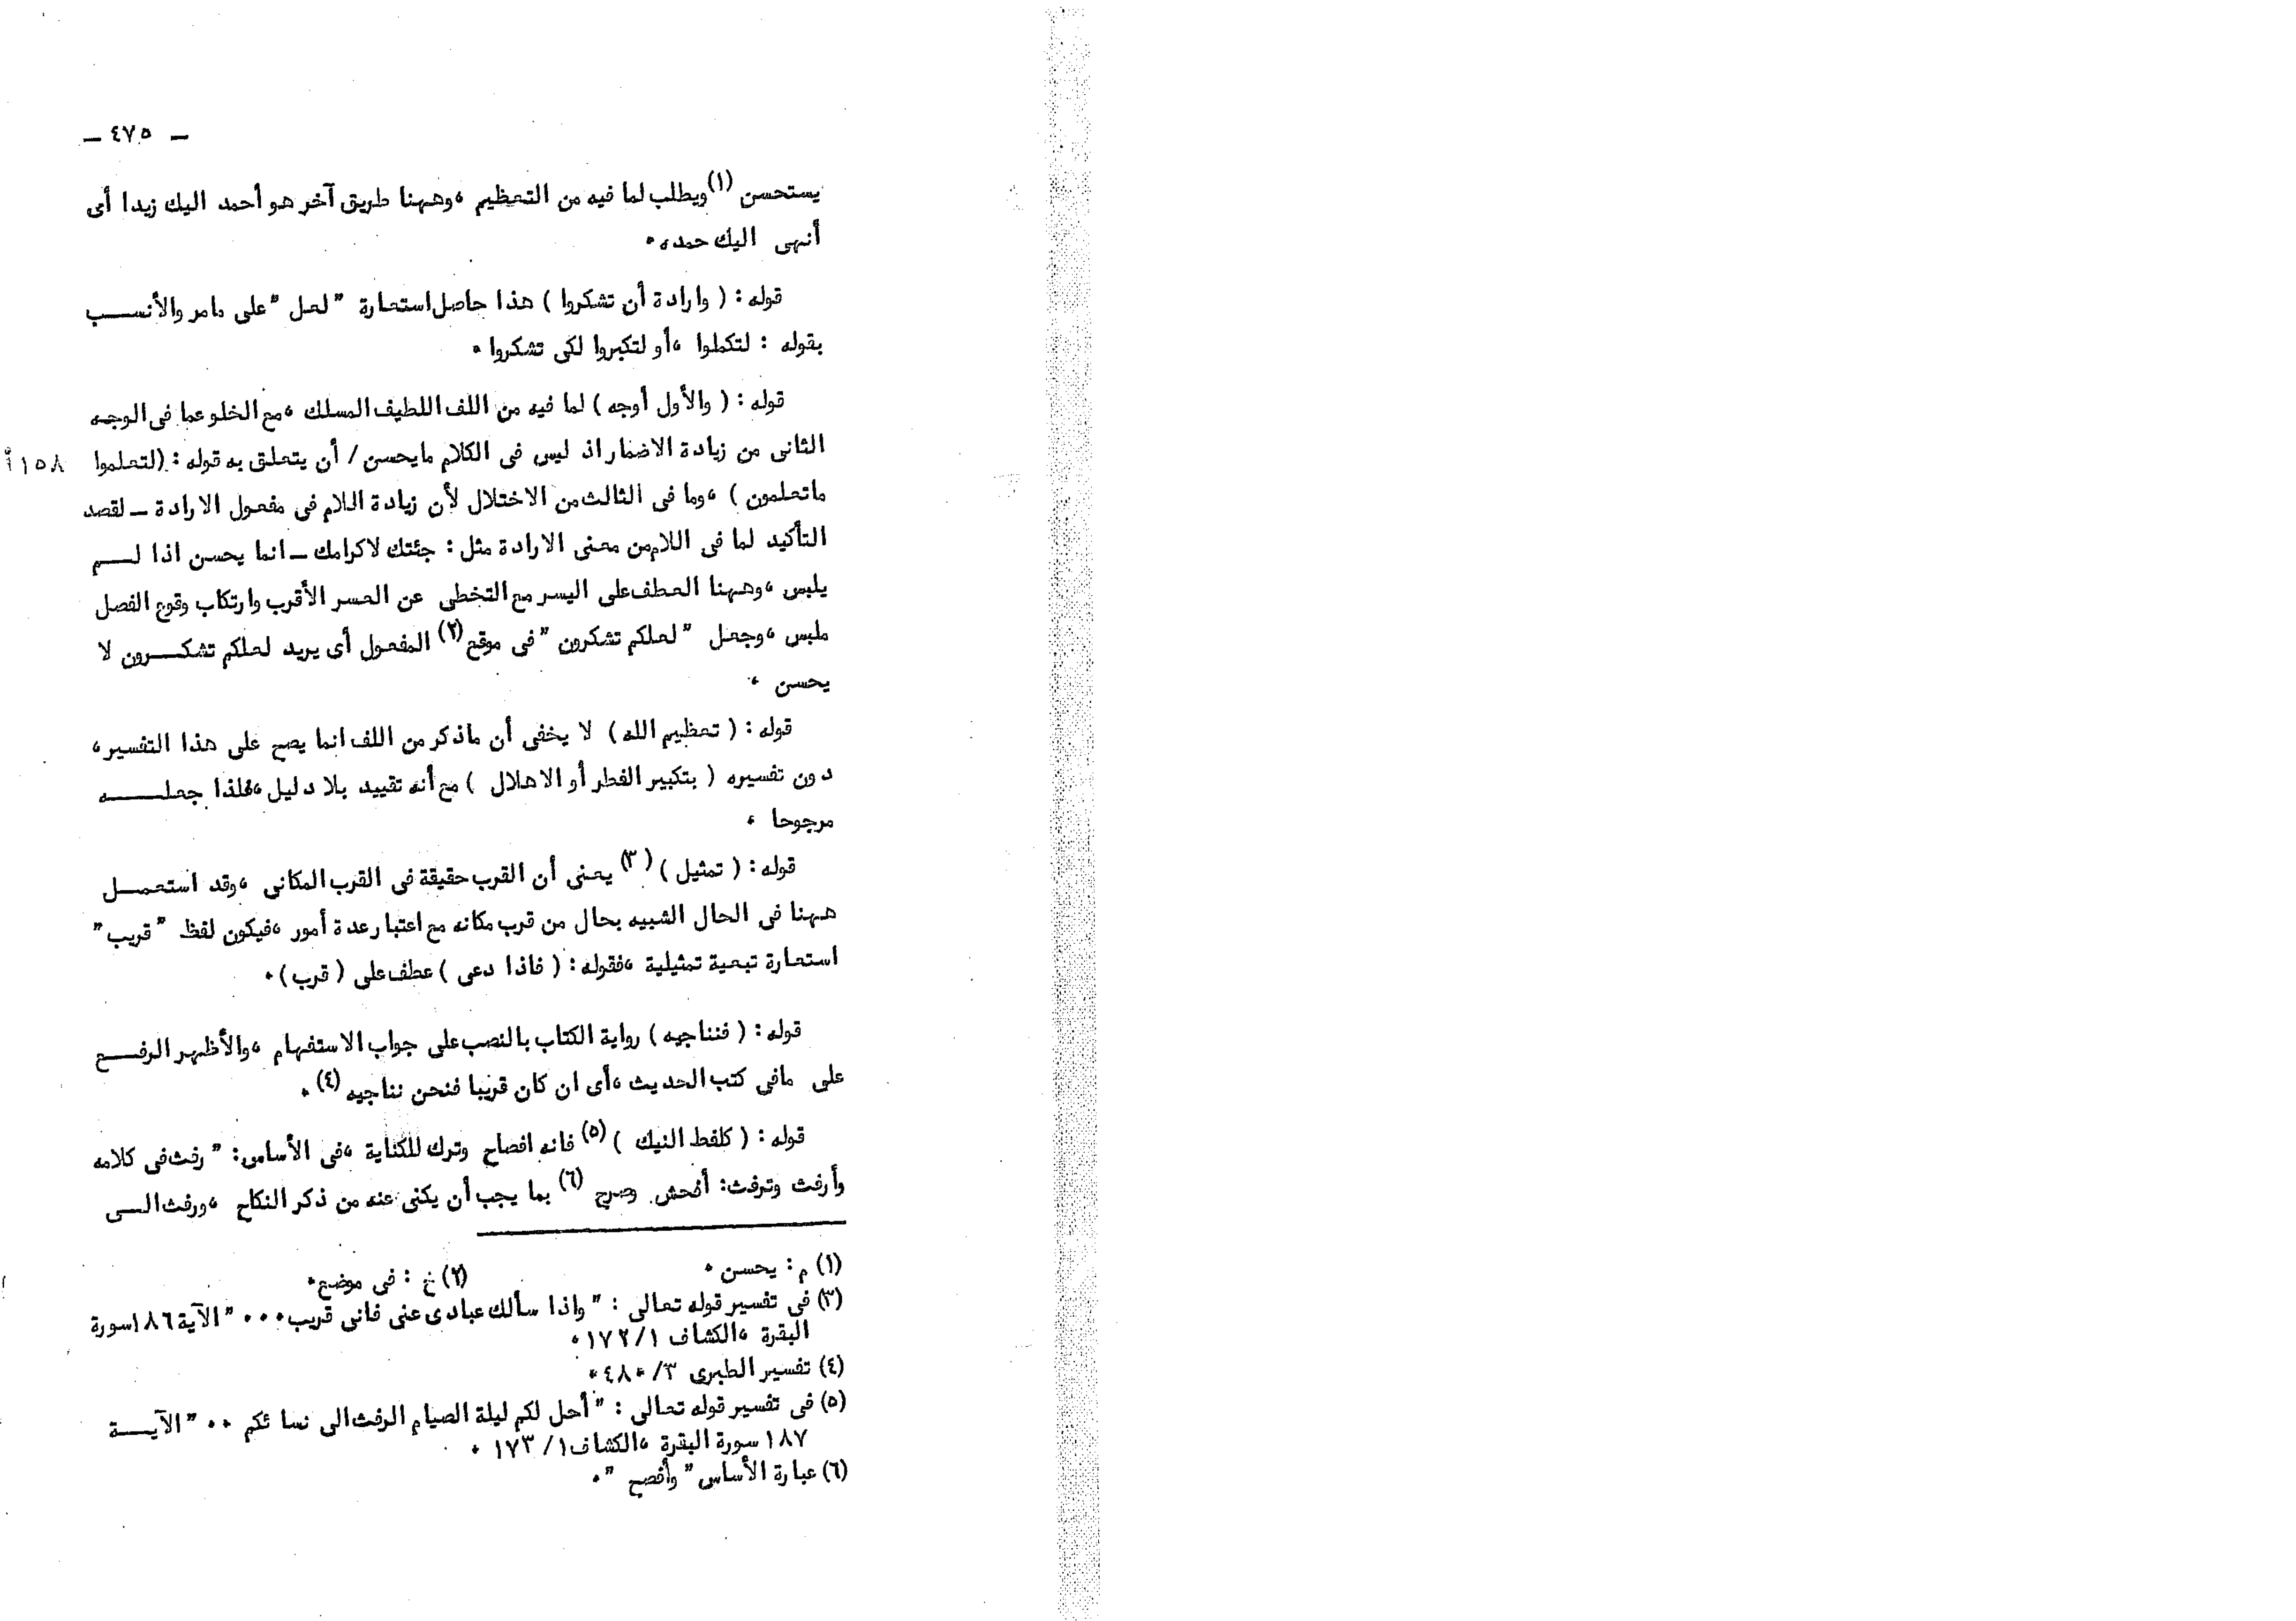 — ٤٧٥ —
يستحسن (١) ويطلب لما فيه من التعظيم ، وههنا طريق آخر هو أحمد اليك زيدا أى
أنهى اليك حمده ٠
قوله : ( وارادة أن تشكروا ) هذا حاصل استعارة " لعل " على مامر والأنسب
بقوله : لتكملوا ، أو لتكبروا لكى تشكروا ٠
قوله : ( والأول أوجه ) لما فيه من اللف اللطيف المسلك ، مع الخلو عما فى الوجه
الثانى من زيادة الاضمار اذ ليس فى الكلام مايحسن / أن يتعلق به قوله : (لتعلموا ١٥٨ أ
ماتعلمون ) ، وما فى الثالث من الاختلال لأن زيادة اللام فى مفعول الارادة — لقصد
التأكيد لما فى اللام من معنى الارادة مثل : جئتك لاكرامك — انما يحسن اذا لم
يلبس ، وههنا العطف على اليسر مع التخطى عن العسر الأقرب وارتكاب وقوع الفصل
ملبس ، وجعل " لعلكم تشكرون " فى موقع (٢) المفعول أى يريد لعلكم تشكرون لا
يحسن ،
قوله : ( تعظيم الله ) لا يخفى أن ماذكر من اللف انما يصح على هذا التفسير ،
دون تفسيره ( بتكبير الفطر أو الاهلال ) مع أنه تقييد بلا دليل ، فلذا جعله
مرجوحا ،
قوله : ( تمثيل ) (٣) يعنى أن القرب حقيقة فى القرب المكانى ، وقد استعمل
ههنا فى الحال الشبيه بحال من قرب مكانه مع اعتبار عدة أمور ، فيكون لفظ " قريب "
استعارة تبعية تمثيلية ، فقوله : ( فاذا دعى ) عطف على ( قرب ) ٠
قوله : ( فنناجيه ) رواية الكتاب بالنصب على جواب الاستفهام ، والأظهر الرفع
على مافى كتب الحديث ، أى ان كان قريبا فنحن نناجيه (٤) ٠
قوله : ( كلفظ النيك ) (٥) فانه افصاح وترك للكناية ، فى الأساس : " رفث فى كلامه
وأرفث وترفث : أفحش وصرح (٦) بما يجب أن يكنى عنه من ذكر النكاح ، ورفث الى
(١) م : يحسن ٠
(٢) خ : فى موضع ٠
(٣) فى تفسير قوله تعالى : " واذا سألك عبادى عنى فانى قريب ٠٠٠ " الآية ١٨٦ سورة
البقرة ، الكشاف ١ / ١٧٢ ٠
(٤) تفسير الطبرى ٣ / ٤٨٠ ٠
(٥) فى تفسير قوله تعالى : " أحل لكم ليلة الصيام الرفث الى نسائكم ٠٠ " الآية
١٨٧ سورة البقرة ، الكشاف ١ / ١٧٣ ٠
(٦) عبارة الأساس " وأفصح " ٠